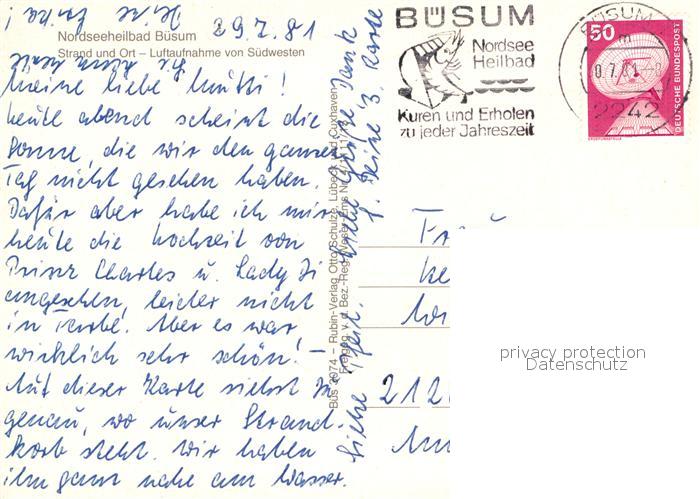 29.7.81
Nordseeheilbad Büsum
Strand und Ort – Luftaufnahme von Südwesten
meine liebe Mutti!
heute abend scheint die
Sonne, die wir den ganzen
Tag nicht gesehen haben.
Dafür aber habe ich mir
heute die Hochzeit von
Prinz Charles u. Lady Di
angesehen, leider nicht
in Farbe. Aber es war
wirklich sehr schön! –
Auf dieser Karte siehst Du
genau, wo unser Strand-
korb steht. Wir haben
ihn ganz nahe am Wasser.
Siehe Pfeil. Liebe Grüße Dank
f. Deine 3. Karte
Büs 3974 – Rubin-Verlag Otto Schulze, Lübeck und Cuxhaven
Freigeg. v. d. Bez.-Reg. Weser-Ems Nr.
BÜSUM
Nordsee
Heilbad
Kuren und Erholen
zu jeder Jahreszeit
BÜSUM
2242
50
DEUTSCHE BUNDESPOST
212
privacy protection
Datenschutz